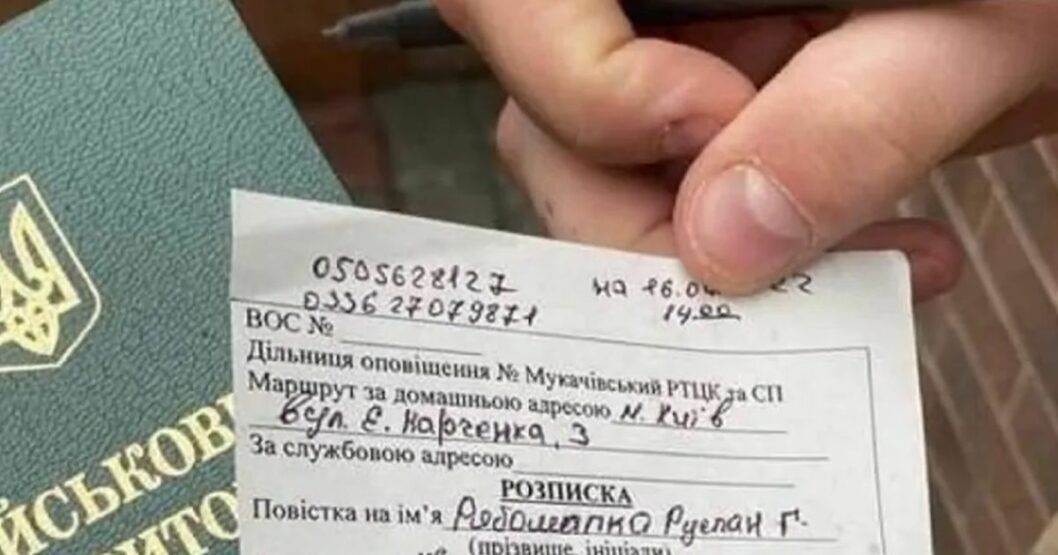 0505628127 на 16.0 22
033627079871 14.00
ВОС №
Дільниця оповіщення № Мукачівський РТЦК та СП
Маршрут за домашньою адресою м. Київ
вул. Є. Харченка, 3
За службовою адресою
РОЗПИСКА
Повістка на ім'я Руслан Г.
(прізвище, ініціали)
ЙСЬКОВ
ИТО